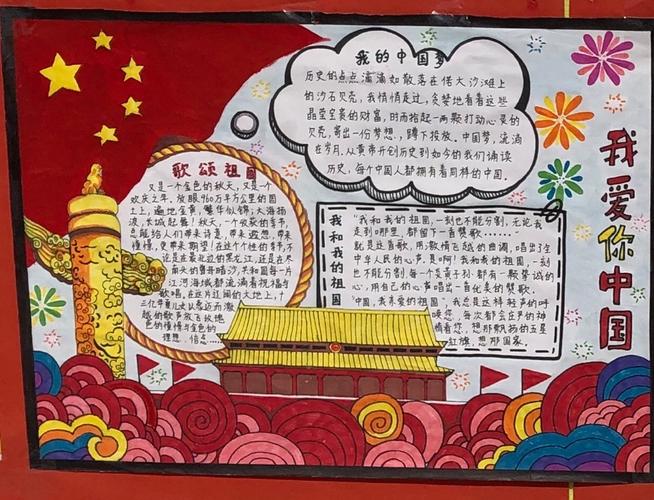 我的中国梦
历史的点点滴滴如散落在偌大沙滩上
的沙石贝壳，我悄悄走过，贪婪地看着这些
晶莹宝贵的财富，时而拾起一两颗打动心灵的
贝壳，寄出一份梦想，蹲下投放。中国梦，流淌
在岁月，从黄帝开创历史到如今的我们诵读
历史，每个中国人都拥有着同样的中国。
歌颂祖国
又是一个金色的秋天，又是一个
欢庆之年，放眼960万平方公里的国
土上，遍地金黄，繁华似锦，大海扬
波，长城起舞！秋天，一个收获的季节，
总能给人们带来诗意，带来遐想，带来
憧憬，更带来期望！在这个个性的季节，不
论是在最北边的黑龙江，还是在东
南头的曾母暗沙，共和国每一片
江河海域都流淌着祝福与
歌唱，在这片辽阔的大地上，十
三亿华夏儿女从感近而激
越的歌声放飞玫瑰
色的憧憬与金色的
理想，倍点……
我和我的祖国
“我和我的祖国，一刻也不能分割，无论我
走到哪里，都留下一首赞歌……”
就是这首歌，用激情飞越的曲调，唱出了全
中华人民的心声，是啊！我和我的祖国，一刻
也不能分割，每一个炎黄子孙都有一颗赞诚的
心，用自己的心声唱出一首优美的赞歌。
“中国，我亲爱的祖国”，我总是这样轻声的呼
唤您，每次都会庄严的神
情看您，想那飘扬的五星
红旗，想那国家。
我爱你中国